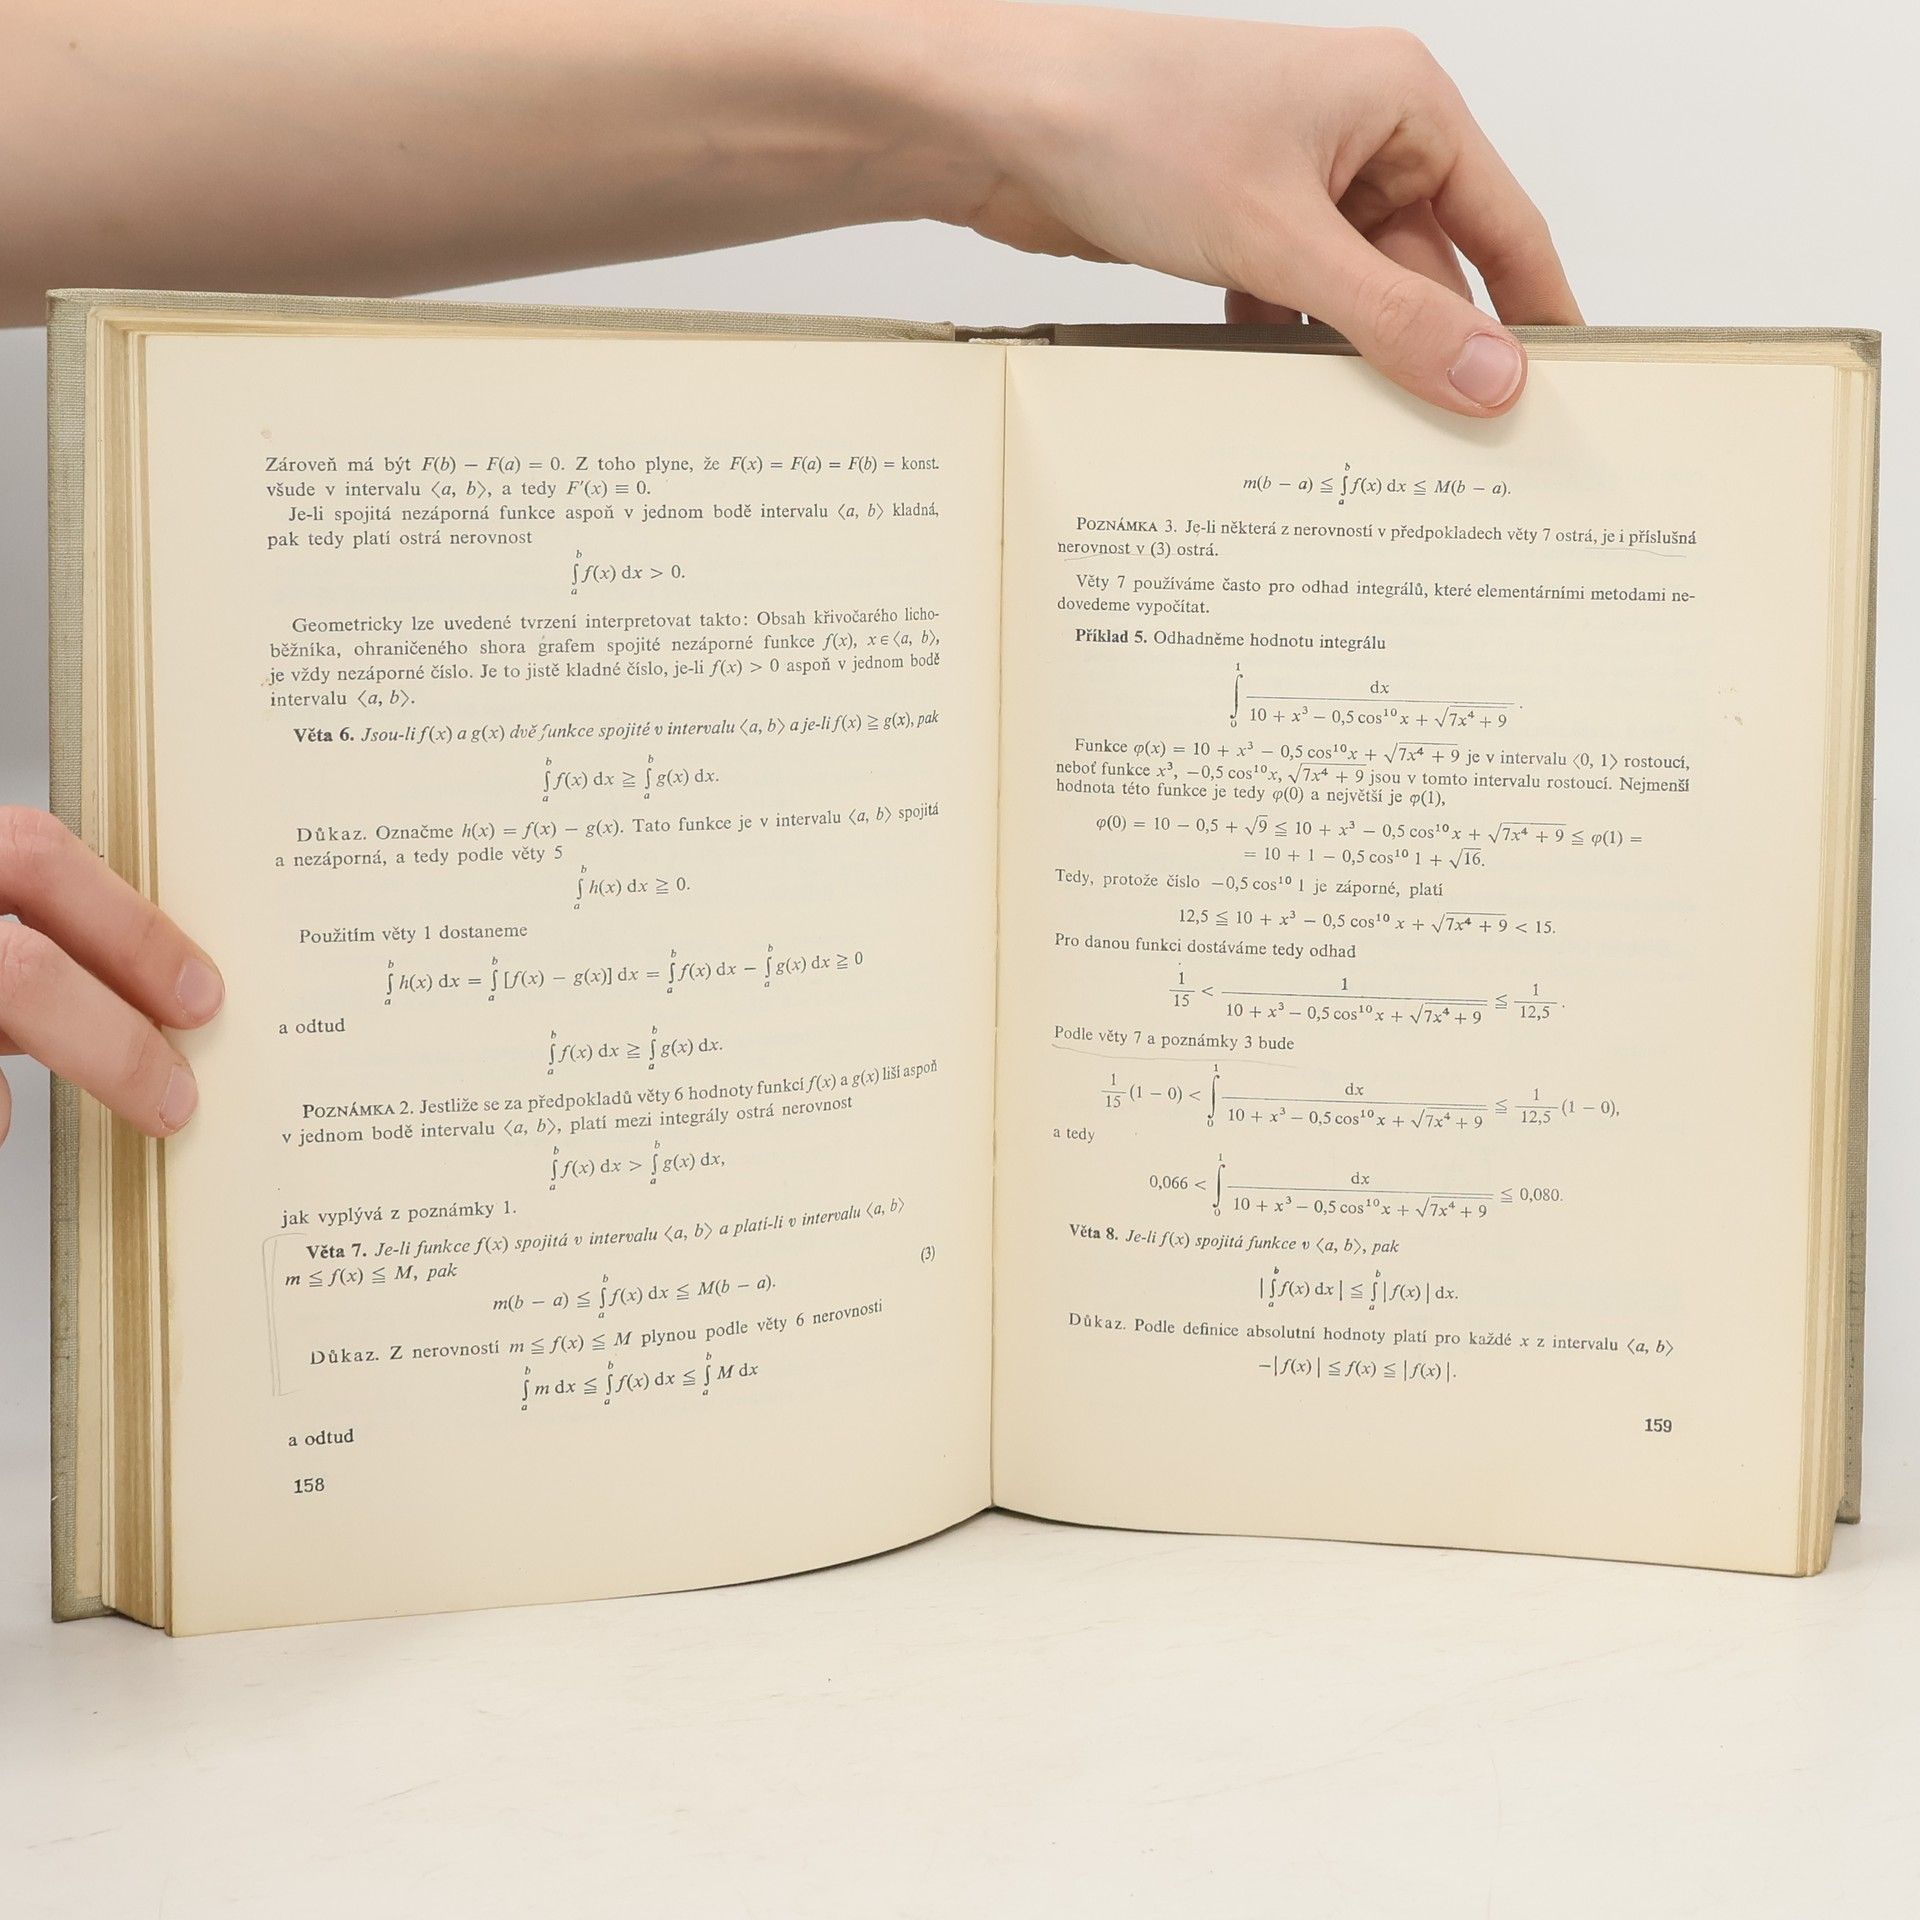 Zároveň má být F(b) − F(a) = 0. Z toho plyne, že F(x) = F(a) = F(b) = konst.
všude v intervalu ⟨a, b⟩, a tedy F′(x) ≡ 0.
Je-li spojitá nezáporná funkce aspoň v jednom bodě intervalu ⟨a, b⟩ kladná,
pak tedy platí ostrá nerovnost
∫ₐᵇ f(x) dx > 0.
Geometricky lze uvedené tvrzení interpretovat takto: Obsah křivočarého licho-
běžníka, ohraničeného shora grafem spojité nezáporné funkce f(x), x∈⟨a, b⟩,
je vždy nezáporné číslo. Je to jistě kladné číslo, je-li f(x) > 0 aspoň v jednom bodě
intervalu ⟨a, b⟩.
Věta 6. Jsou-li f(x) a g(x) dvě funkce spojité v intervalu ⟨a, b⟩ a je-li f(x) ≧ g(x), pak
∫ₐᵇ f(x) dx ≧ ∫ₐᵇ g(x) dx.
Důkaz. Označme h(x) = f(x) − g(x). Tato funkce je v intervalu ⟨a, b⟩ spojitá
a nezáporná, a tedy podle věty 5
∫ₐᵇ h(x) dx ≧ 0.
Použitím věty 1 dostaneme
∫ₐᵇ h(x) dx = ∫ₐᵇ [f(x) − g(x)] dx = ∫ₐᵇ f(x) dx − ∫ₐᵇ g(x) dx ≧ 0
a odtud
∫ₐᵇ f(x) dx ≧ ∫ₐᵇ g(x) dx.
POZNÁMKA 2. Jestliže se za předpokladů věty 6 hodnoty funkcí f(x) a g(x) liší aspoň
v jednom bodě intervalu ⟨a, b⟩, platí mezi integrály ostrá nerovnost
∫ₐᵇ f(x) dx > ∫ₐᵇ g(x) dx,
jak vyplývá z poznámky 1.
Věta 7. Je-li funkce f(x) spojitá v intervalu ⟨a, b⟩ a platí-li v intervalu ⟨a, b⟩
m ≦ f(x) ≦ M, pak
m(b − a) ≦ ∫ₐᵇ f(x) dx ≦ M(b − a). (3)
Důkaz. Z nerovností m ≦ f(x) ≦ M plynou podle věty 6 nerovnosti
∫ₐᵇ m dx ≦ ∫ₐᵇ f(x) dx ≦ ∫ₐᵇ M dx
a odtud
158
m(b − a) ≦ ∫ₐᵇ f(x) dx ≦ M(b − a).
POZNÁMKA 3. Je-li některá z nerovností v předpokladech věty 7 ostrá, je i příslušná
nerovnost v (3) ostrá.
Věty 7 používáme často pro odhad integrálů, které elementárními metodami ne-
dovedeme vypočítat.
Příklad 5. Odhadněme hodnotu integrálu
∫₀¹ dx / (10 + x³ − 0,5 cos¹⁰ x + √(7x⁴ + 9)).
Funkce φ(x) = 10 + x³ − 0,5 cos¹⁰ x + √(7x⁴ + 9) je v intervalu ⟨0, 1⟩ rostoucí,
neboť funkce x³, −0,5 cos¹⁰ x, √(7x⁴ + 9) jsou v tomto intervalu rostoucí. Nejmenší
hodnota této funkce je tedy φ(0) a největší je φ(1),
φ(0) = 10 − 0,5 + √9 ≦ 10 + x³ − 0,5 cos¹⁰ x + √(7x⁴ + 9) ≦ φ(1) =
= 10 + 1 − 0,5 cos¹⁰ 1 + √16.
Tedy, protože číslo −0,5 cos¹⁰ 1 je záporné, platí
12,5 ≦ 10 + x³ − 0,5 cos¹⁰ x + √(7x⁴ + 9) < 15.
Pro danou funkci dostáváme tedy odhad
1/15 < 1 / (10 + x³ − 0,5 cos¹⁰ x + √(7x⁴ + 9)) ≦ 1/12,5.
Podle věty 7 a poznámky 3 bude
1/15 (1 − 0) < ∫₀¹ dx / (10 + x³ − 0,5 cos¹⁰ x + √(7x⁴ + 9)) ≦ 1/12,5 (1 − 0),
a tedy
0,066 < ∫₀¹ dx / (10 + x³ − 0,5 cos¹⁰ x + √(7x⁴ + 9)) ≦ 0,080.
Věta 8. Je-li f(x) spojitá funkce v ⟨a, b⟩, pak
|∫ₐᵇ f(x) dx| ≦ ∫ₐᵇ |f(x)| dx.
Důkaz. Podle definice absolutní hodnoty platí pro každé x z intervalu ⟨a, b⟩
−|f(x)| ≦ f(x) ≦ |f(x)|.
159